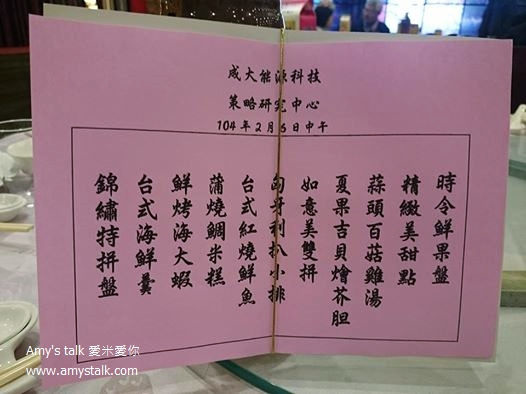 成大能源科技
策略研究中心
104年2月 日中午
錦繡特拼盤
台式海鮮羹
鮮烤海大蝦
蒲燒鯛米糕
台式紅燒鮮魚
匈牙利 小排
如意美雙拼
夏果吉貝燴芥胆
蒜頭百菇雞湯
精緻美甜點
時令鮮果盤
Amy's talk 愛米愛你
www.amystalk.com